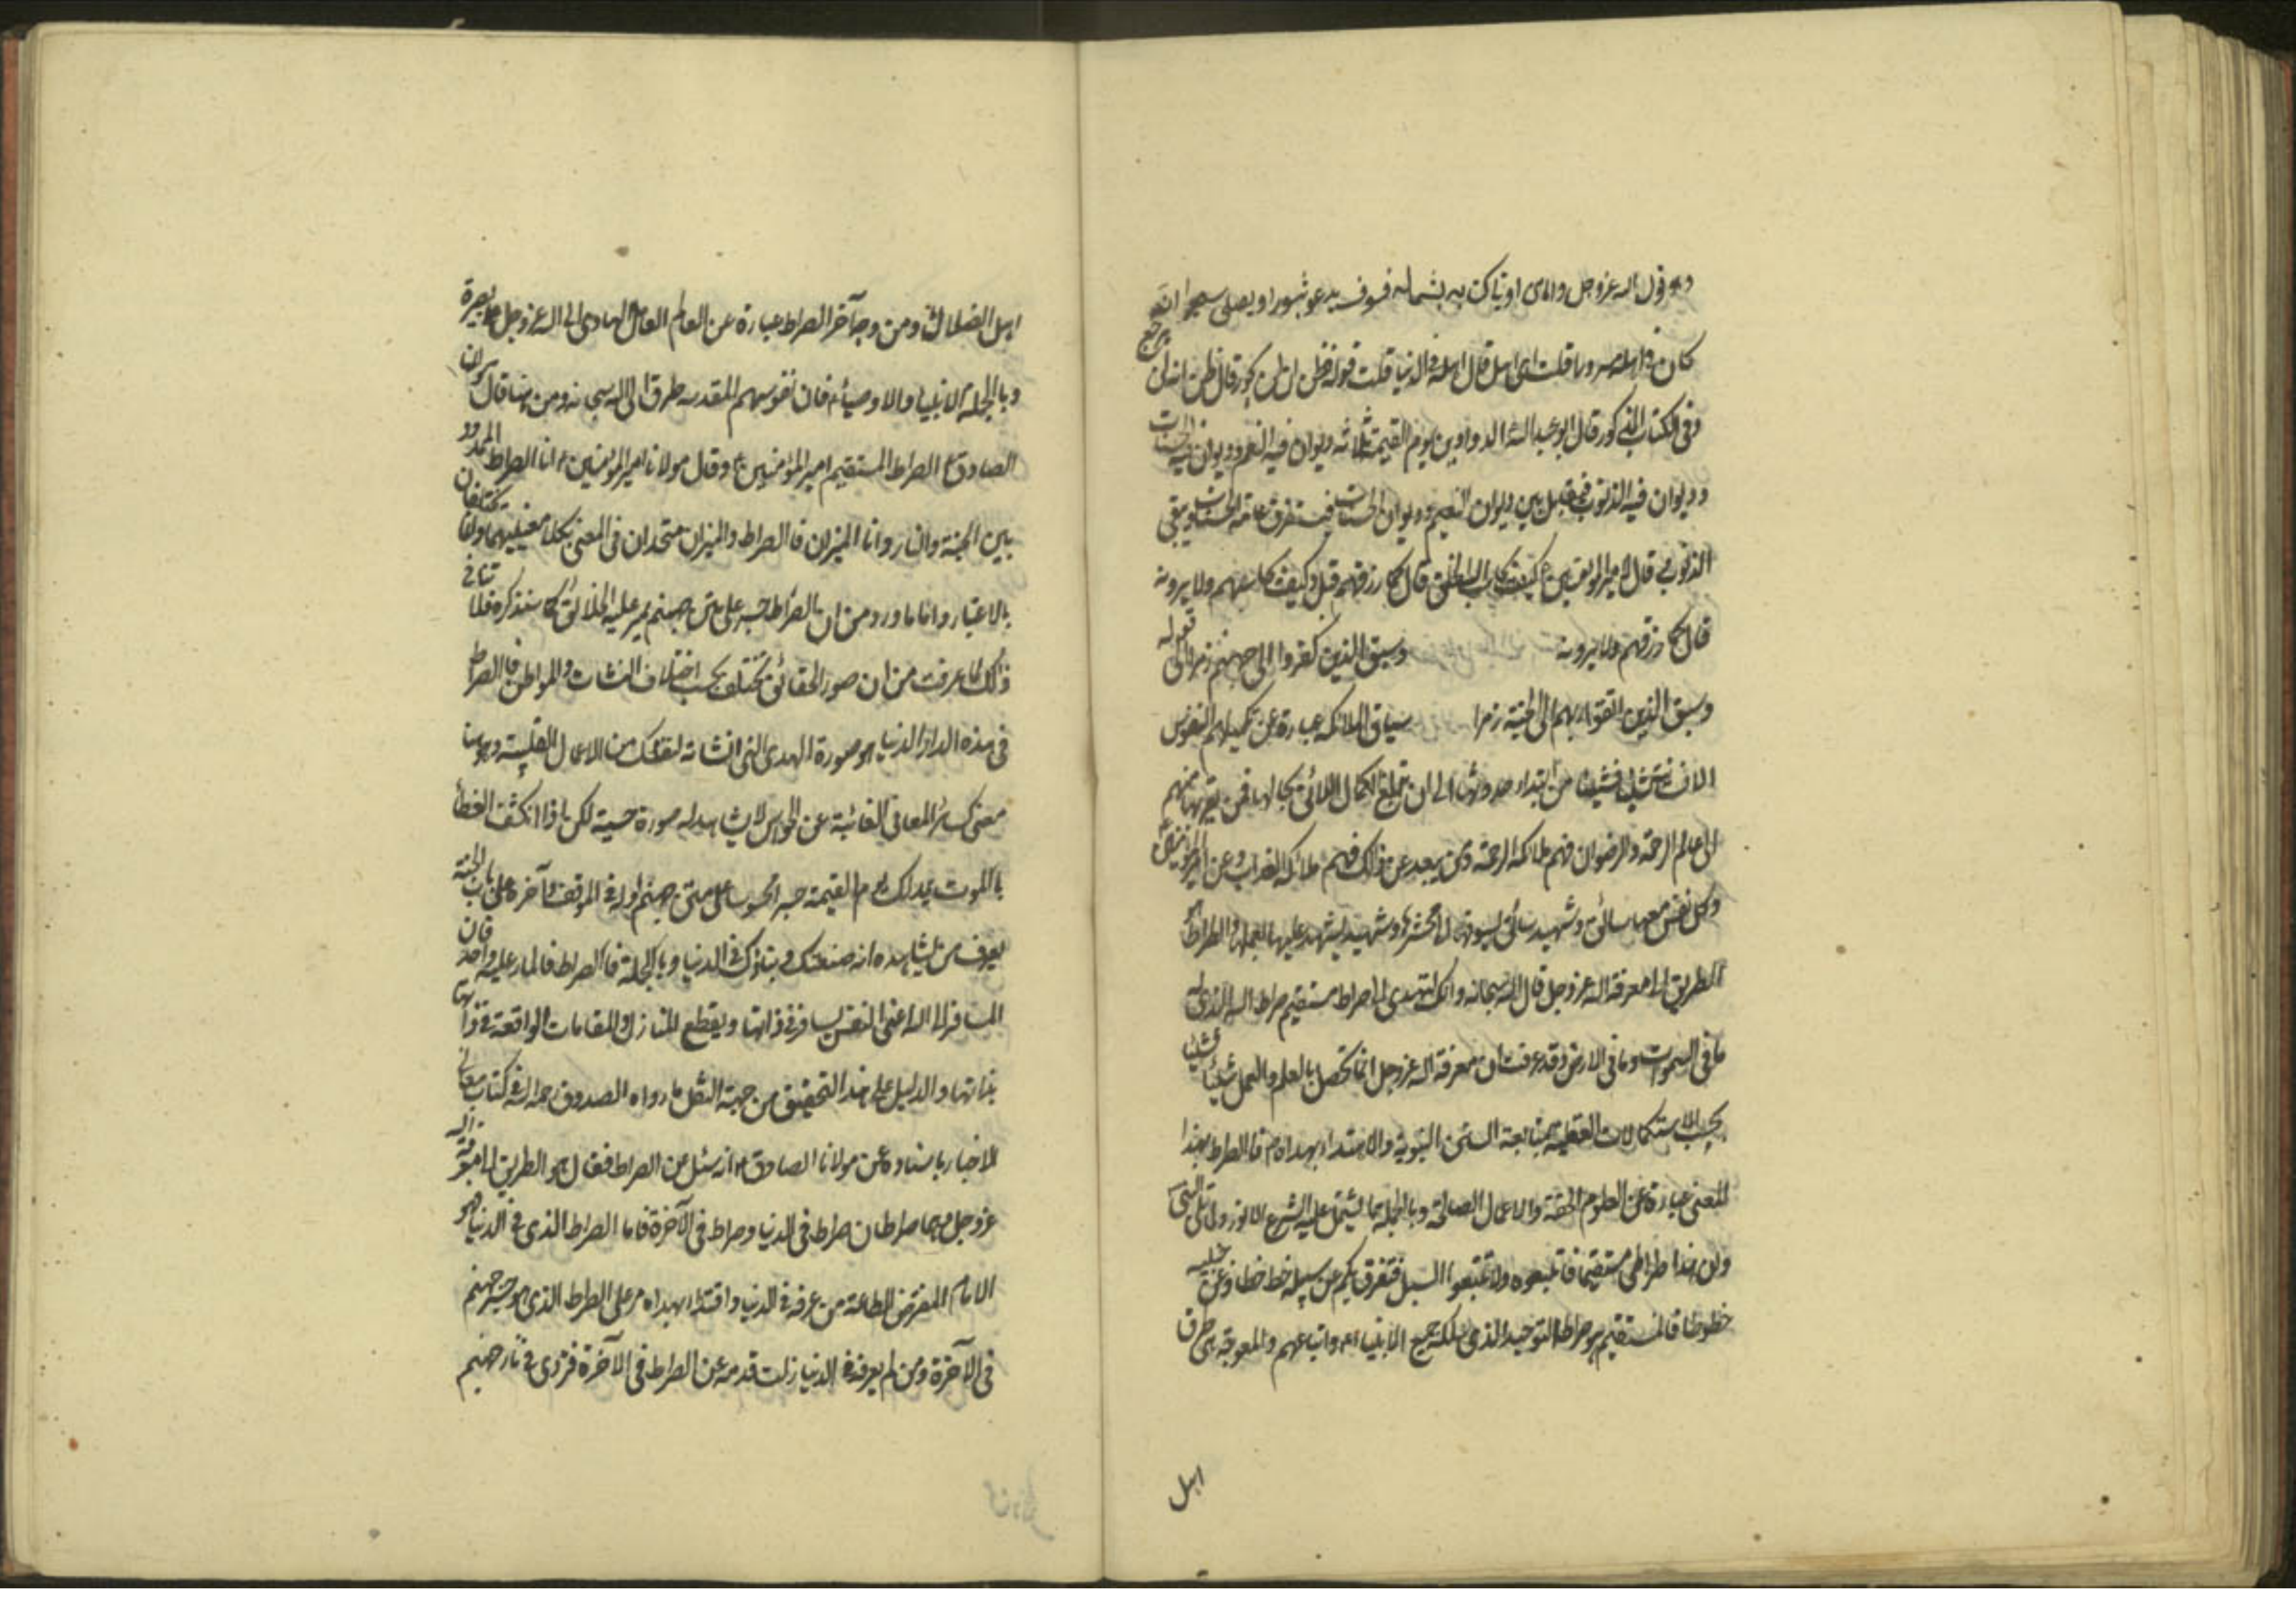 وهو قول الله عز وجل واما من اوتى كتابه بشماله فسوف يدعو ثبورا ويصلى سعيرا انه
كان في اهله مسرورا قلت اى اهل قال اهله في الدنيا قلت قوله انه ظن ان لن يحور قال ظن انه لن يرجع
وفى الكتاب المذكور قال ابو عبد الله الدواوين يوم القيمة ثلاثة ديوان فيه النعم وديوان فيه الحسنات
وديوان فيه الذنوب فيقابل بين ديوان النعيم وديوان الحسنات فيستغرق عامة الحسنات ويبقى
الذنوب قال امير المؤمنين ع كيف يحاسب الخلق قال كما رزقهم قيل وكيف يحاسبهم ولا يرونه
قال كما رزقهم ولا يرونه وسيق الذين كفروا الى جهنم زمرا الى قوله
وسيق الذين اتقوا ربهم الى الجنة زمرا سياق الملائكة عبارة عن تكميلهم النفوس
الانسانية شيئا فشيئا من ابتداء حدوثها الى ان تبلغ الكمال اللائق بحالها فمن يقربها منهم
الى عالم الرحمة والرضوان فهم ملائكة الرحمة ومن يبعد عن ذلك فهم ملائكة العذاب وعن امير المؤمنين ع
وكل نفس معها سائق وشهيد سائق يسوقها الى محشرها وشهيد يشهد عليها بعملها الصراط هو
الطريق الى معرفة الله عز وجل قال الله سبحانه وانك لتهدى الى صراط مستقيم صراط الله الذى له
ما فى السموات وما فى الارض وقد عرفت ان معرفة الله عز وجل انما تحصل بالعلم والعمل شيئا فشيئا
بحسب الاستكمالات العقلية بمتابعة السنن النبوية والاهتداء بهداهم فالصراط بهذا
المعنى عبارة عن العلوم الحقة والاعمال الصالحة وبالجملة ما يشتمل عليه الشرع الانور ولما تلى النبى
وان هذا صراطى مستقيما فاتبعوه ولا تتبعوا السبل فتفرق بكم عن سبيله خط خطا وعن جنبيه
خطوطا فالمستقيم هو صراط التوحيد الذى سلكه جميع الانبياء واتباعهم والمعوجة هى طرق
اهل
اهل الضلال ومن وجه آخر الصراط عبارة عن العالم العامل الهادى الى الله عز وجل على بصيرة
وبالجملة الانبياء والاوصياء فان نفوسهم المقدسة طرق الى الله سبحانه ومن هنا قال مولانا
الصادق ع الصراط المستقيم امير المؤمنين ع وقال مولانا امير المؤمنين ع انا الصراط الممدود
بين الجنة والنار وانا الميزان فالصراط والميزان متحدان فى المعنى بكلا معنييهما وانما يختلفان
بالاعتبار واما ما ورد من ان الصراط جسر على متن جهنم يمر عليه الخلائق كما سنذكره فلا تنافى
ذلك لما عرفت من ان صور الحقائق تختلف بحسب اختلاف النشآت والمواطن فالصراط
فى هذه الدار الدنيا هو صورة الهدى التى انشاته لنفسك من الاعمال القلبية وهو هنا
معنى كسائر المعانى الغائبة عن الحواس لا يشاهد له صورة حسية لكن اذا انكشف الغطاء
بالموت يمد لك يوم القيمة جسرا محسوسا على متن جهنم اوله فى الموقف وآخره على باب الجنة
يعرف من يشاهده انه صنعتك وبناؤك فى الدنيا وبالجملة فالصراط فالمار عليه واحد فان
المسافر الى الله اعنى النفس يسافر فى ذاتها ويقطع المنازل والمقامات الواقعة فى ذاتها
بذاتها والدليل على هذا التحقيق من جهة النقل ما رواه الصدوق رحمه الله فى كتاب معانى
الاخبار باسناده عن مولانا الصادق ع انه سئل عن الصراط فقال هو الطريق الى معرفة الله
عز وجل وهما صراطان صراط فى الدنيا وصراط فى الآخرة فاما الصراط الذى فى الدنيا فهو
الامام المفترض الطاعة من عرفه فى الدنيا واقتدا بهداه مر على الصراط الذى هو جسر جهنم
فى الآخرة ومن لم يعرفه فى الدنيا زلت قدمه عن الصراط فى الآخرة فتردى فى نار جهنم